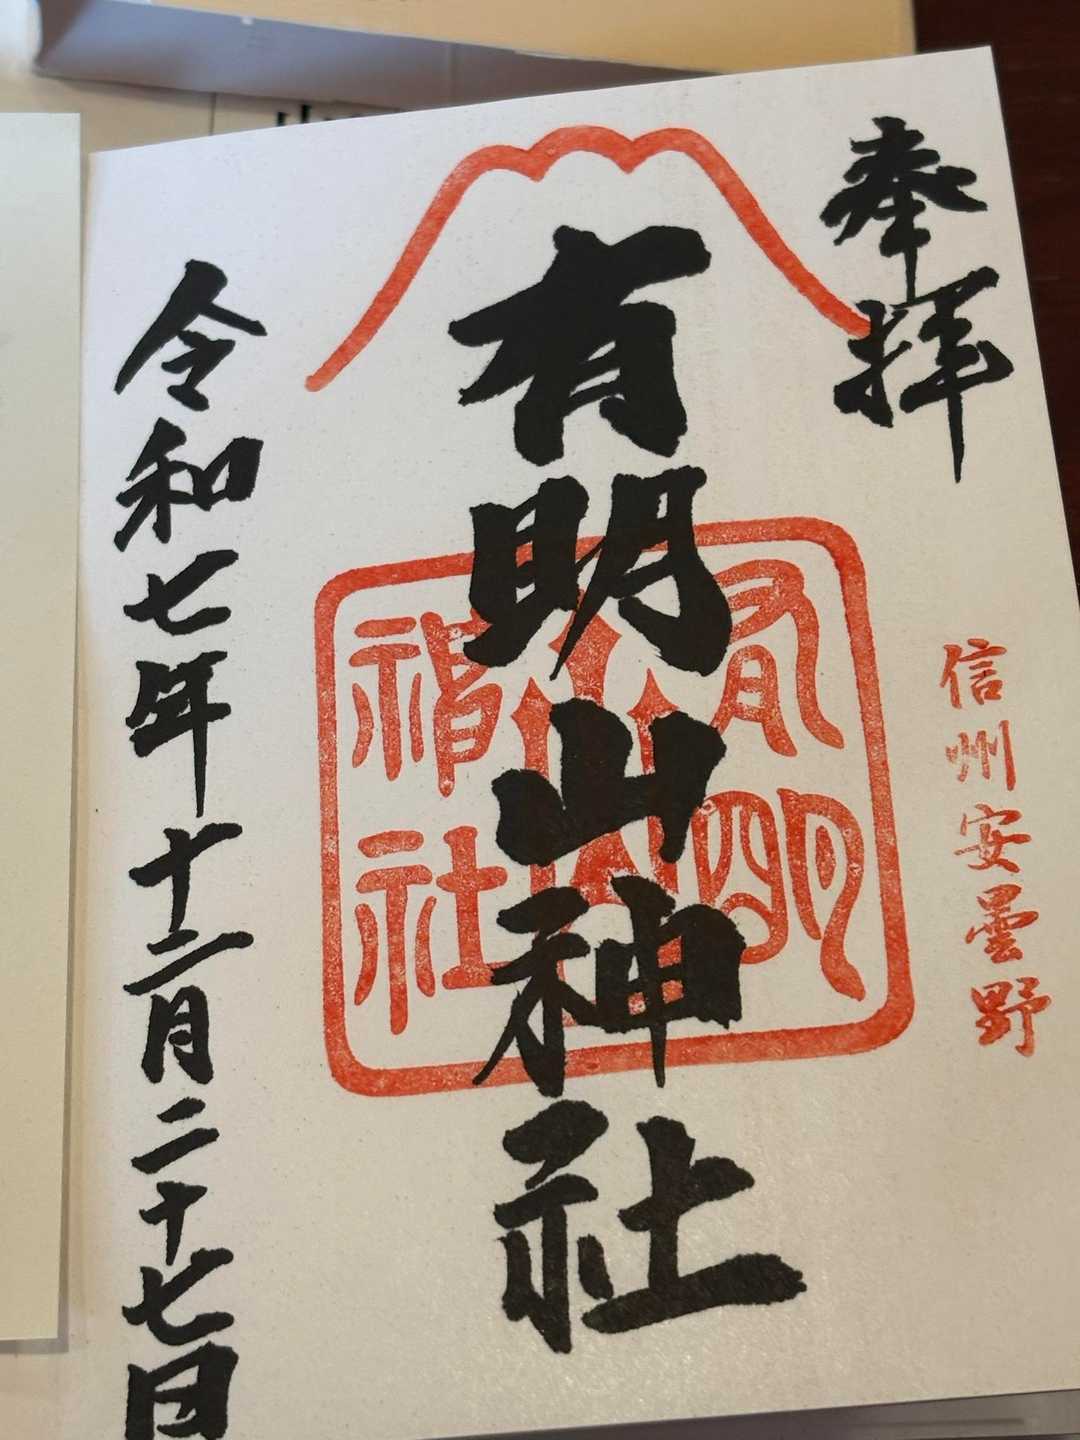 奉拝
信州安曇野
有明山神社
有明山神社
令和七年十二月二十七日